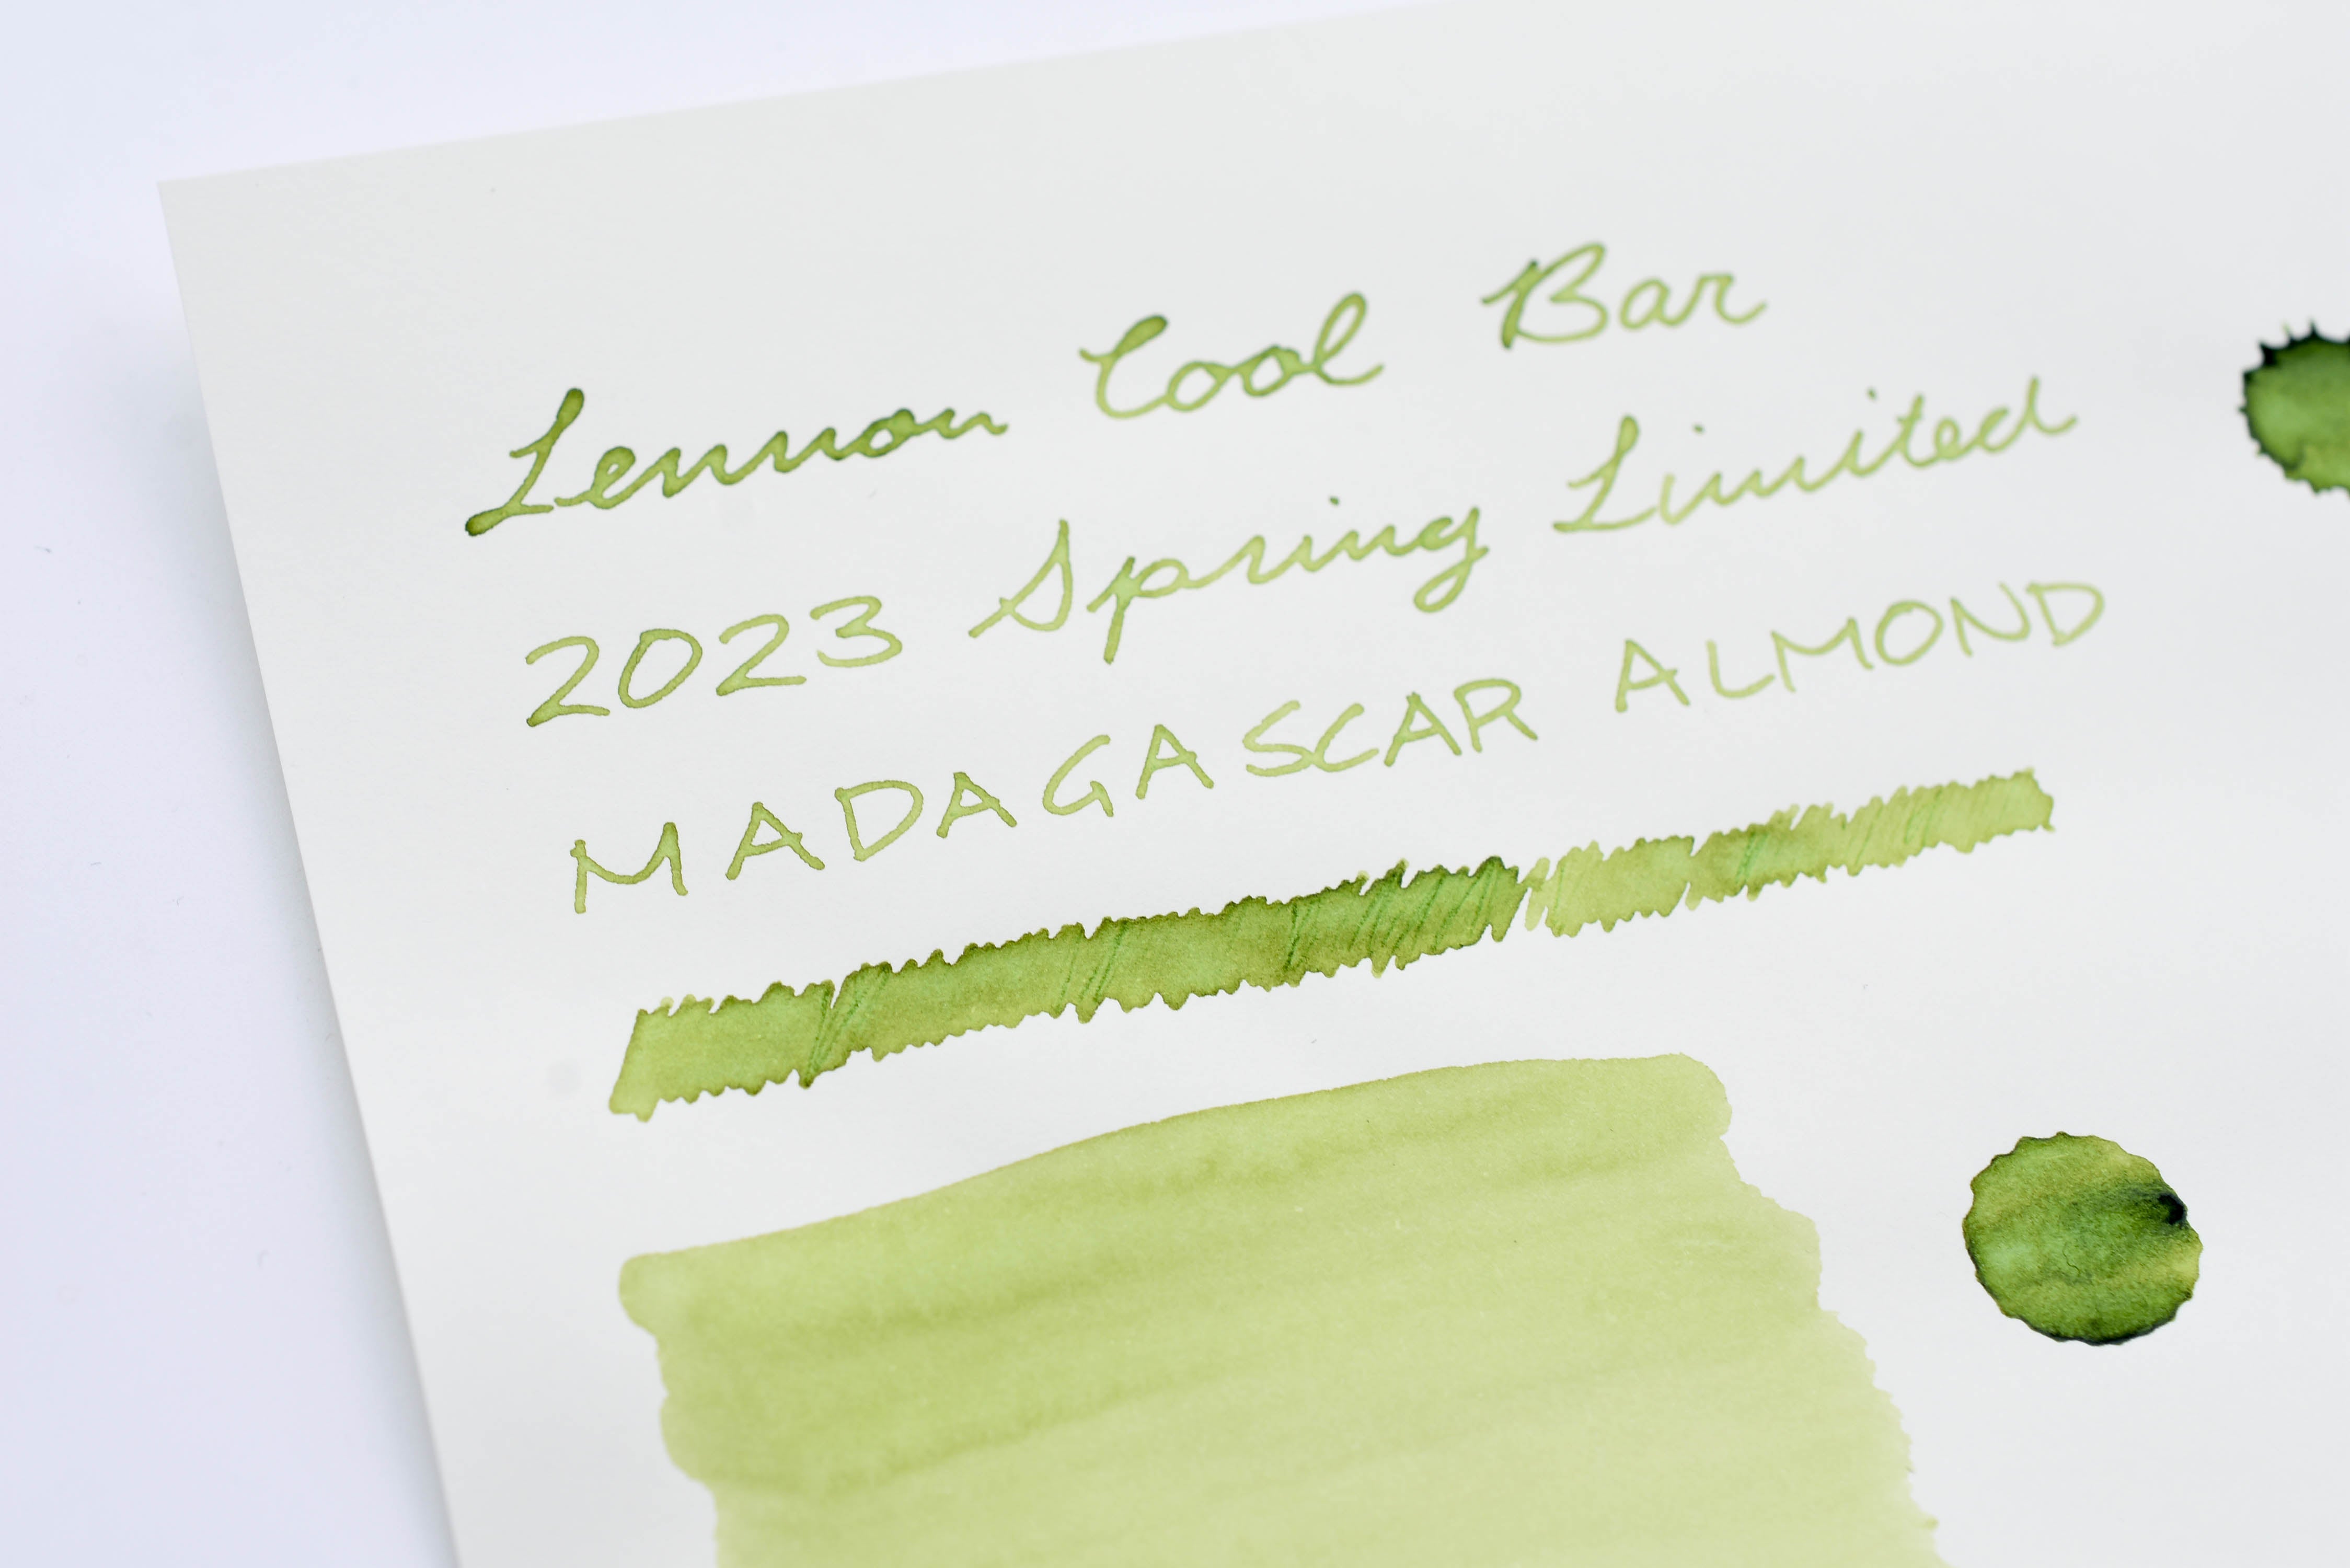 Lennon Cool Bar
2023 Spring Limited
MADAGASCAR ALMOND